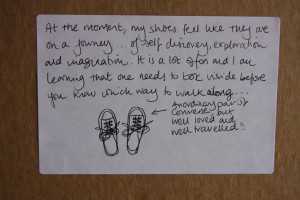 At the moment, my shoes feel like they are
on a journey... of self discovery, exploration
and imagination. It is a lot of fun and I am
learning that one needs to look inside before
you know which way to walk along...
An ordinary pair of
Converse but
well loved and
well travelled!